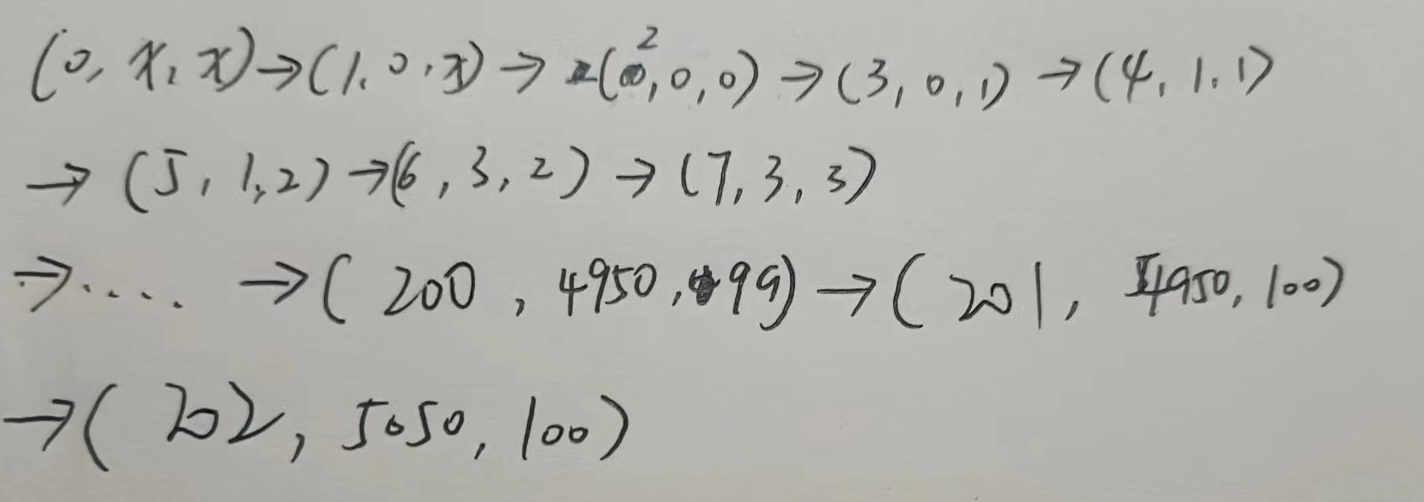 (0, x, x)→(1, 0, x)→(2, 0, 0)→(3, 0, 1)→(4, 1, 1)
→(5, 1, 2)→(6, 3, 2)→(7, 3, 3)
→.... →(200, 4950, 99)→(201, 4950, 100)
→(202, 5050, 100)